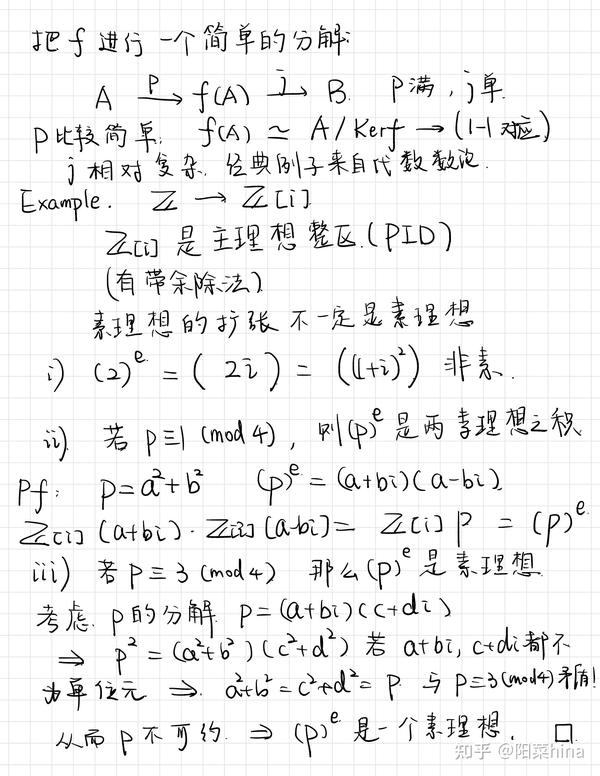 把 f 进行一个简单的分解:
A →^p f(A) →^j B. p满, j单.
p比较简单: f(A) ≃ A/Kerf → (1-1对应)
j 相对复杂. 经典例子来自代数数论.
Example. ℤ → ℤ[i]
ℤ[i] 是主理想整区. (PID)
(有带余除法).
素理想的扩张不一定是素理想
i) (2)^e = (2i) = ((1+i)^2) 非素.
ii) 若 p≡1 (mod 4), 则(p)^e 是两素理想之积
Pf: p=a^2+b^2 (p)^e=(a+bi)(a-bi)
ℤ[i](a+bi)·ℤ[i](a-bi)= ℤ[i]p = (p)^e
iii) 若 p≡3 (mod 4) 那么(p)^e 是素理想.
考虑 p的分解 p=(a+bi)(c+di)
⇒ p^2=(a^2+b^2)(c^2+d^2) 若 a+bi, c+di都不
为单位元 ⇒ a^2+b^2=c^2+d^2=p 与 p≡3(mod4)矛盾!
从而 p 不可约. ⇒ (p)^e 是一个素理想. □
知乎 @阳菜hina